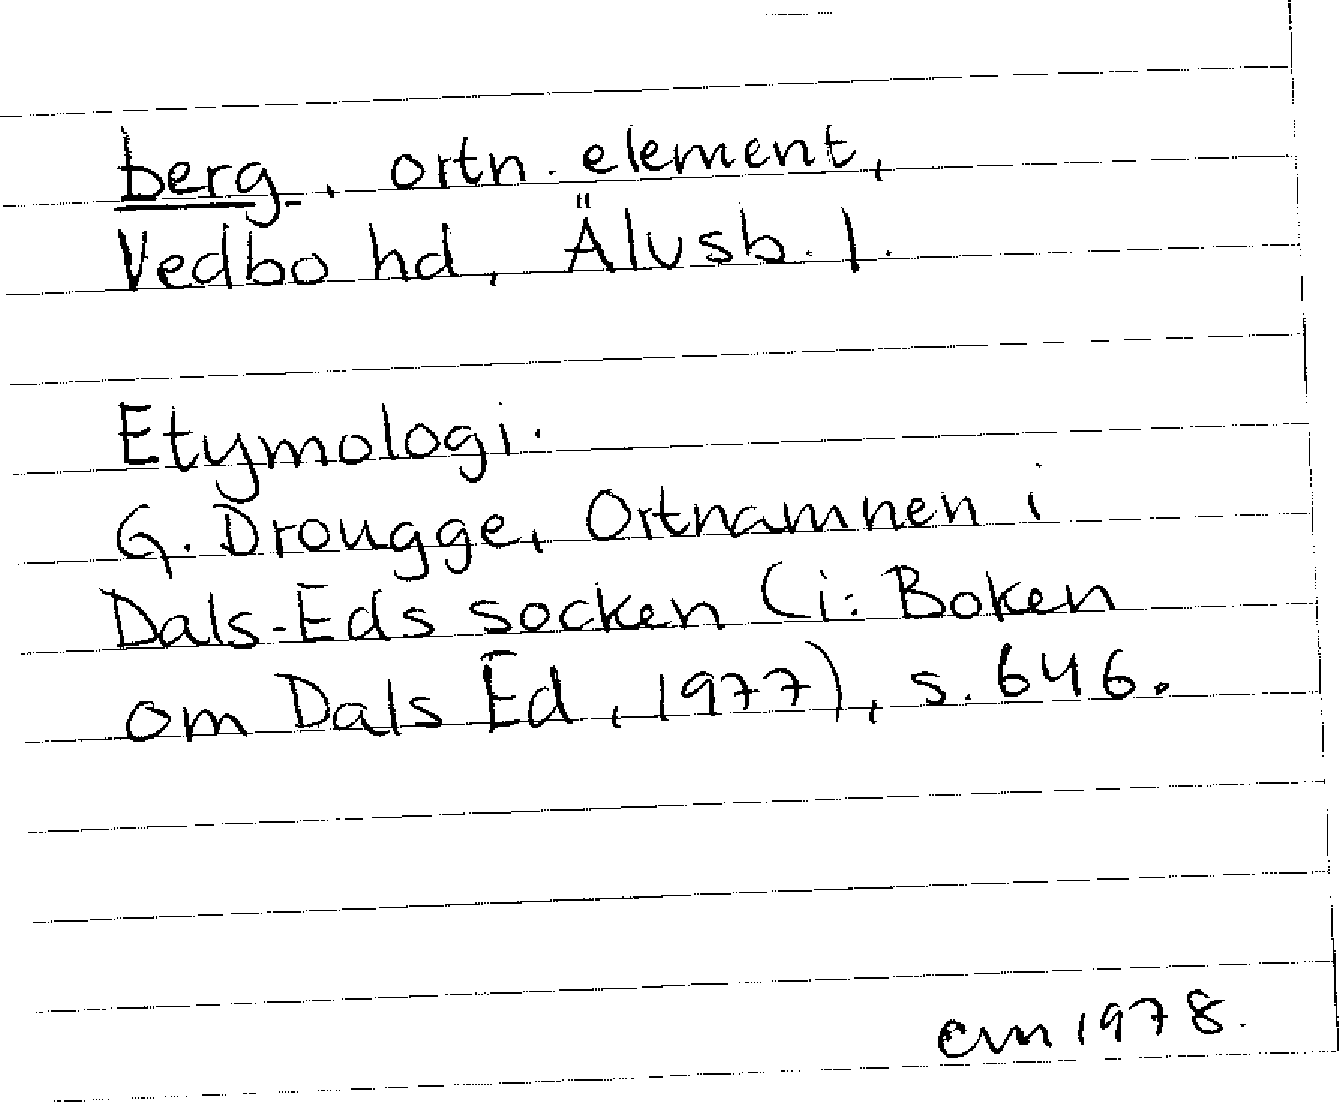 berg, ortn. element,
Vedbo hd, Älvsb. l.
Etymologi:
G. Drougge, Ortnamnen i
Dals-Eds socken (i: Boken
om Dals Ed, 1977), s. 646.
1978.